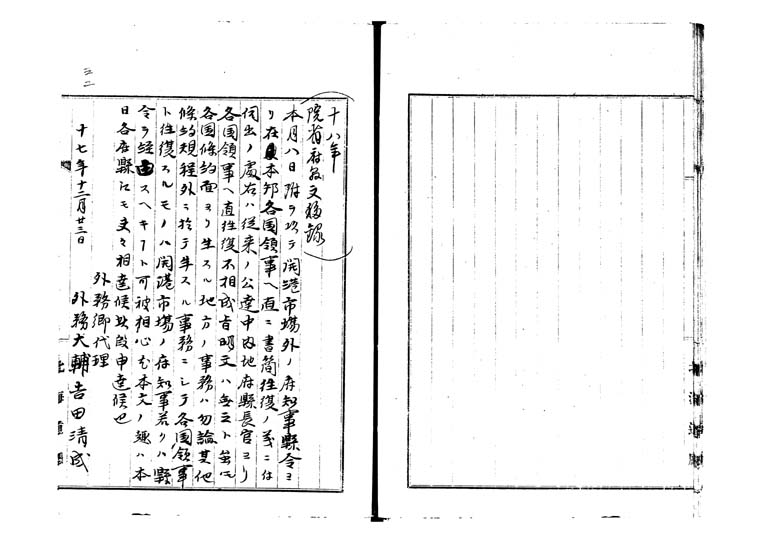 十八年
院省府県文移録
本月八日附ヲ以テ開港市場外ノ府知事縣令ヨ
リ在本邦各国領事ヘ直ニ書簡往復ノ義ニ付
伺出ノ處右ハ従来ノ公達中内地府縣長官ヨリ
各国領事ヘ直往復不相成旨明文ハ無之ト雖ﾓ
各国條約面ヨリ生スル地方ノ事務ハ勿論其他
條約規程外ニ於テ生スル事務ニシテ各国領事
ト往復スルモノハ開港市場ノ府知事若クハ縣
令ヲ経由スヘキ可被相心尤本文ノ趣ハ本
日各府縣ニモ夫々相達候此段申達候也
十七年十二月廿三日
外務卿代理
外務大輔吉田清成
三二